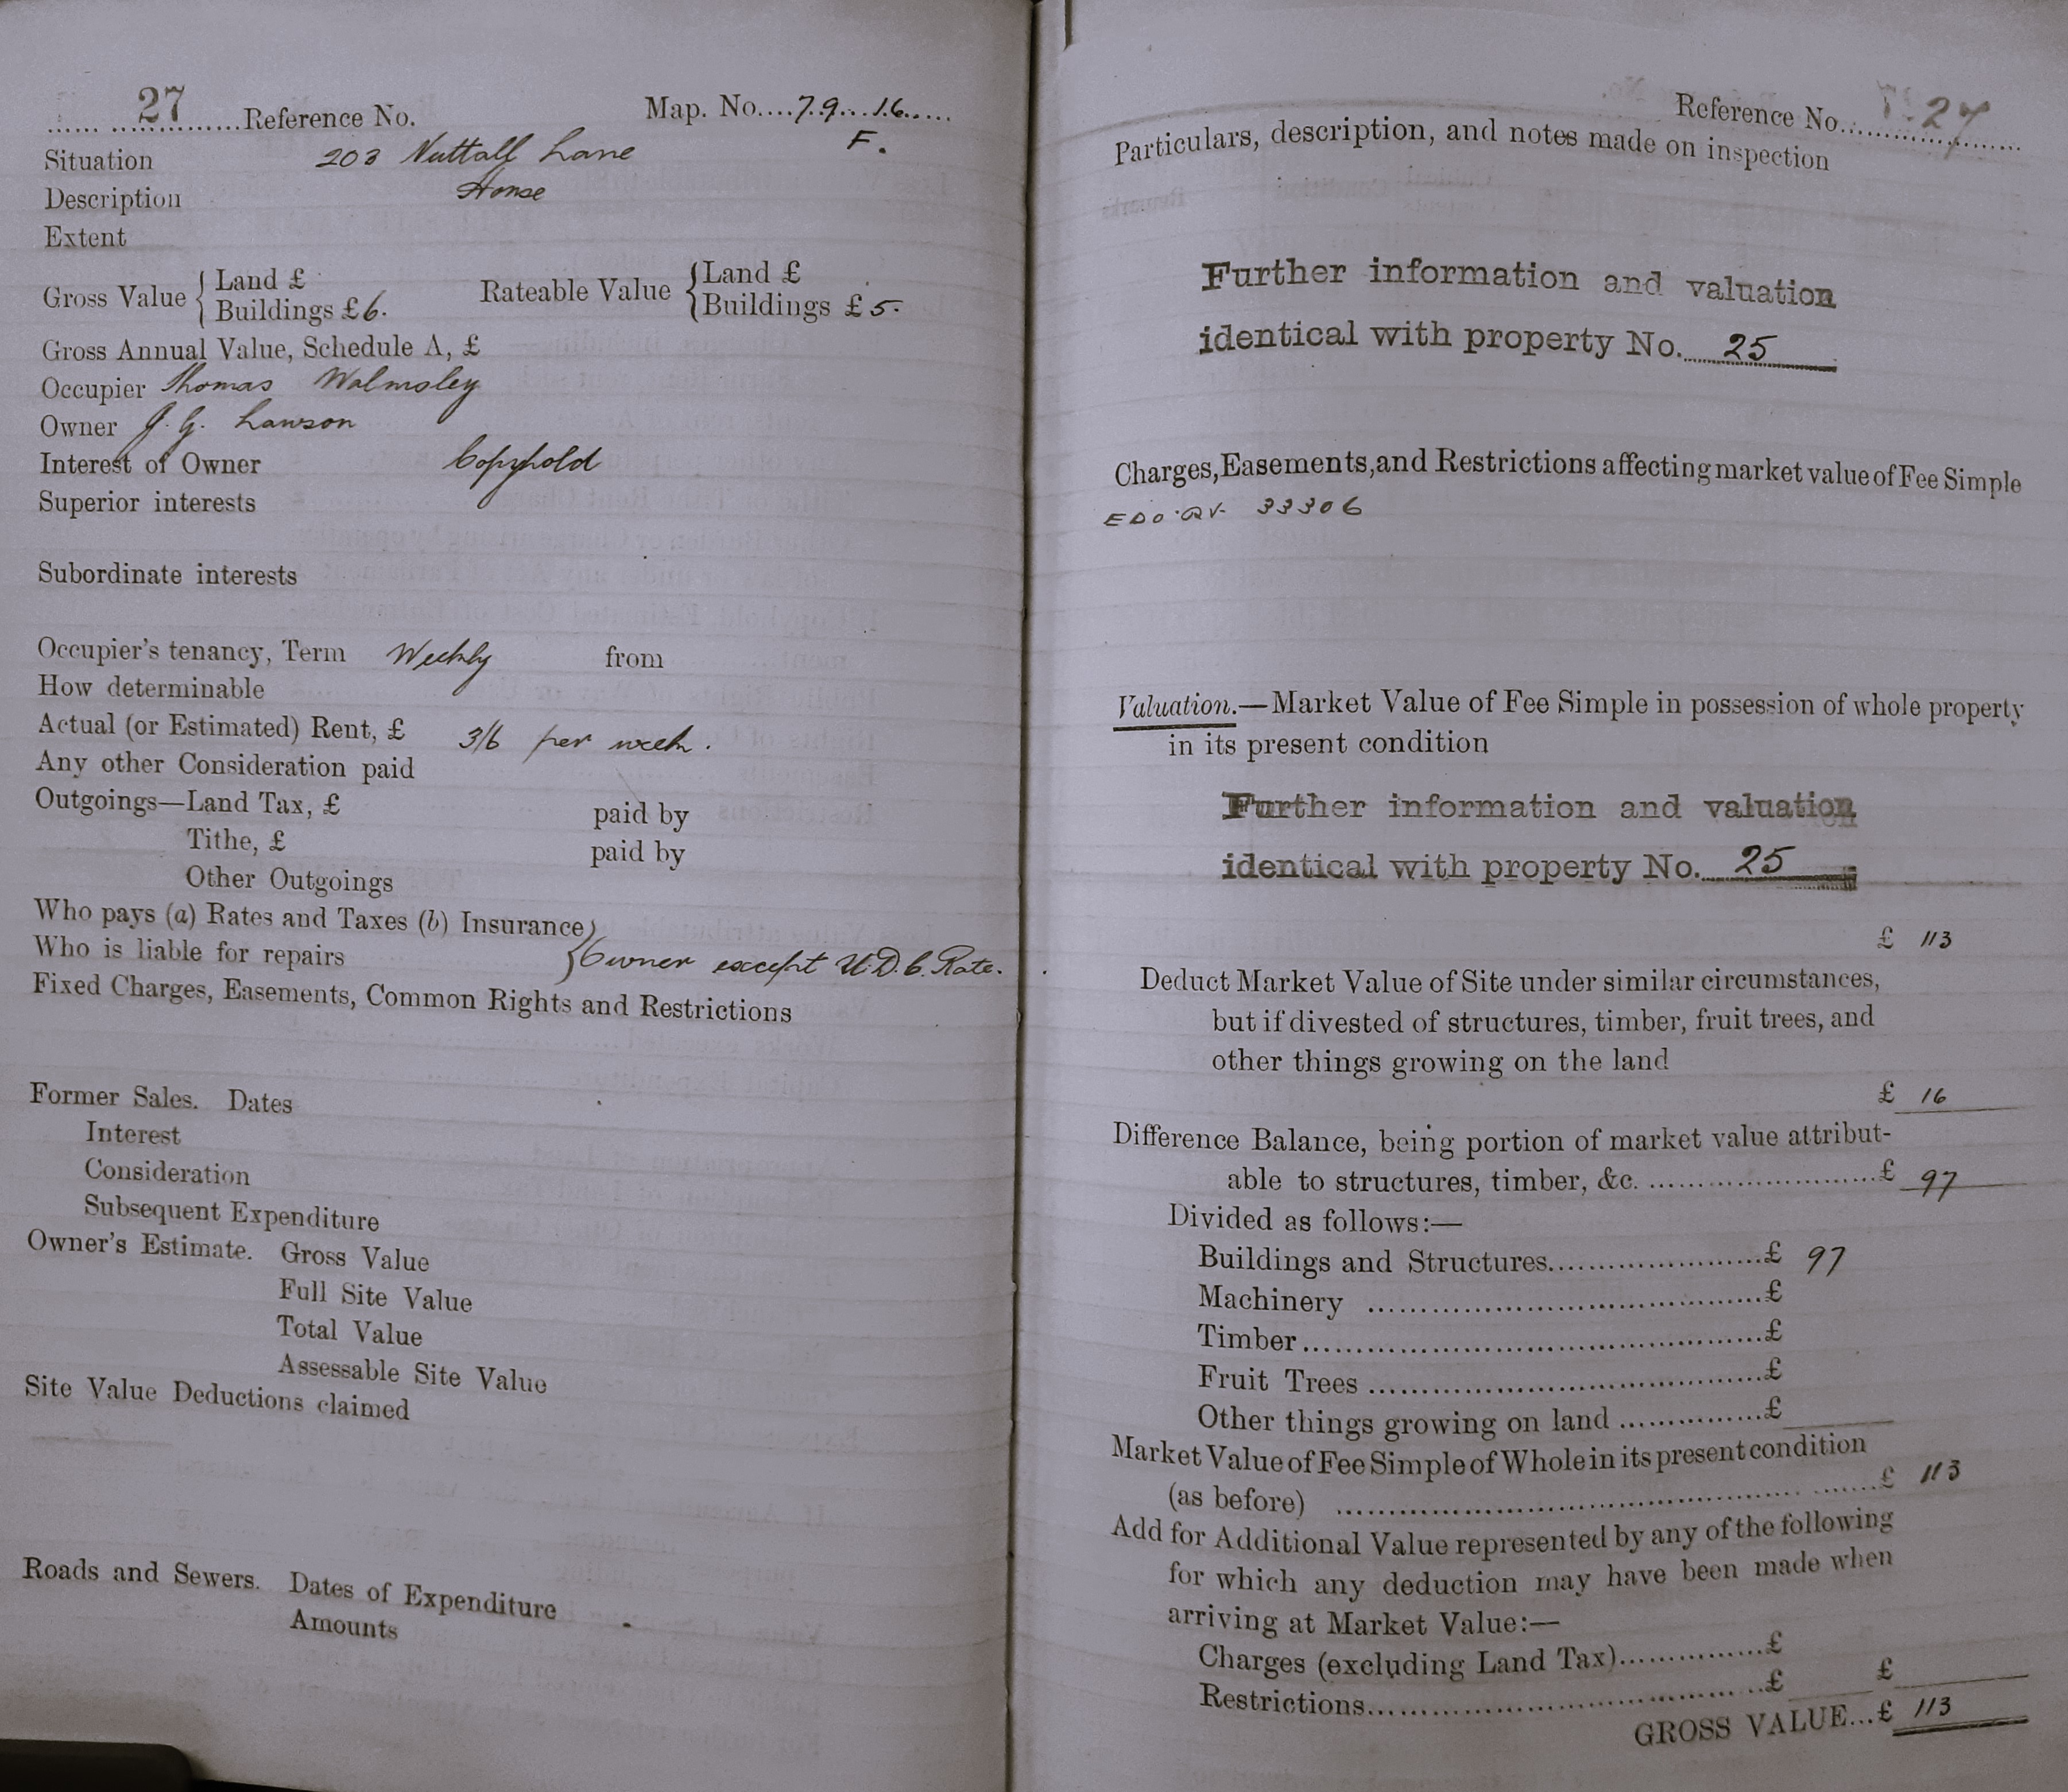 27 Reference No. Map. No. 79. 16.
F.
Situation 203 Nuttall Lane
Description House
Extent
Gross Value { Land £ Rateable Value { Land £
Buildings £ 6. Buildings £ 5.
Gross Annual Value, Schedule A, £
Occupier Thomas Walmsley
Owner J. G. Lawson
Interest of Owner Copyhold
Superior interests
Subordinate interests
Occupier's tenancy, Term Weekly from
How determinable
Actual (or Estimated) Rent, £ 3/6 per week.
Any other Consideration paid
Outgoings—Land Tax, £ paid by
Tithe, £ paid by
Other Outgoings
Who pays (a) Rates and Taxes (b) Insurance }
Who is liable for repairs } Owner except U.D.C. Rate.
Fixed Charges, Easements, Common Rights and Restrictions
Former Sales. Dates
Interest
Consideration
Subsequent Expenditure
Owner's Estimate. Gross Value
Full Site Value
Total Value
Assessable Site Value
Site Value Deductions claimed
Roads and Sewers. Dates of Expenditure
Amounts
Reference No. 27
Particulars, description, and notes made on inspection
Further information and valuation
identical with property No. 25
Charges, Easements, and Restrictions affecting market value of Fee Simple
33306
Valuation.—Market Value of Fee Simple in possession of whole property
in its present condition
Further information and valuation
identical with property No. 25
£ 113
Deduct Market Value of Site under similar circumstances,
but if divested of structures, timber, fruit trees, and
other things growing on the land
£ 16
Difference Balance, being portion of market value attribut-
able to structures, timber, &c. £ 97
Divided as follows:—
Buildings and Structures £ 97
Machinery £
Timber £
Fruit Trees £
Other things growing on land £
Market Value of Fee Simple of Whole in its present condition
(as before) £ 113
Add for Additional Value represented by any of the following
for which any deduction may have been made when
arriving at Market Value:—
Charges (excluding Land Tax) £
Restrictions £ £
GROSS VALUE...£ 113